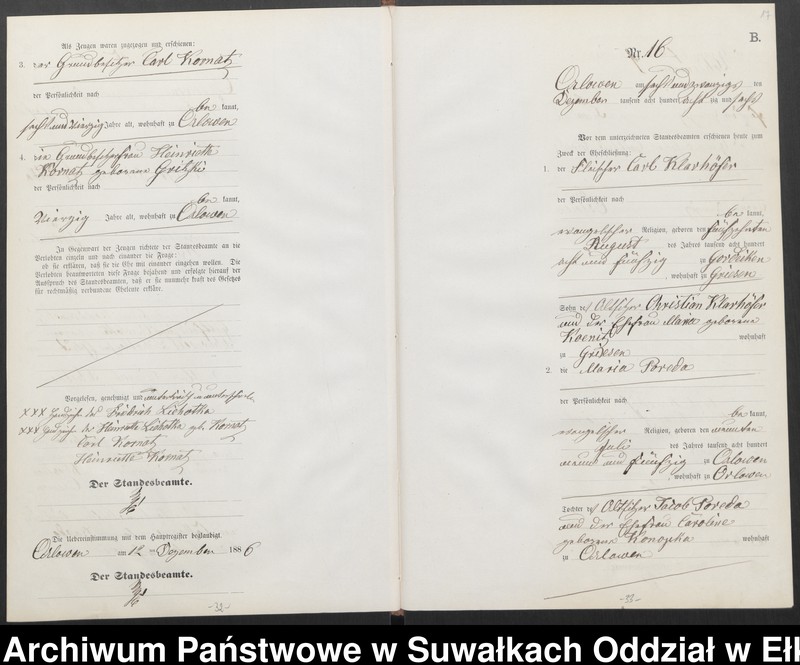 Als Zeugen waren zugezogen und erschienen:
3. der Grundbesitzer Carl Kornatz
der Persönlichkeit nach
be kannt,
sechsundvierzig Jahre alt, wohnhaft zu Orlowen
4. die Grundbesitzerfrau Heinriette
Kornatz geborene
der Persönlichkeit nach
be kannt,
vierzig Jahre alt, wohnhaft zu Orlowen
In Gegenwart der Zeugen richtete der Standesbeamte an die
Verlobten einzeln und nach einander die Frage:
ob sie erklären, daß sie die Ehe mit einander eingehen wollen. Die
Verlobten beantworteten diese Frage bejahend und erfolgte hierauf der
Ausspruch des Standesbeamten, daß er sie nunmehr kraft des Gesetzes
für rechtmäßig verbundene Eheleute erkläre.
Vorgelesen, genehmigt und
XXX Handzeichen des Friedrich
XXX Handzeichen der Heinriette geb. Kornatz
Carl Kornatz
Heinriette Kornatz
Der Standesbeamte.
Die Uebereinstimmung mit dem Hauptregister beglaubigt
Orlowen am 12 ten Dezember 1886
Der Standesbeamte.
-32-
17
B.
Nr. 16
Orlowen am achtundzwanzigsten
Dezember tausend acht hundert achtzig und sechs
Vor dem unterzeichneten Standesbeamten erschienen heute zum
Zweck der Eheschließung:
1. der Fleischer Carl Klarhöfer
der Persönlichkeit nach
be kannt,
evangelischer Religion, geboren den fünfzehnten
August des Jahres tausend acht hundert
acht und fünfzig zu Gordeiken
wohnhaft zu Griesen
Sohn des Altsitzer Christian Klarhöfer
und der Ehefrau Marie geborene
Koenig wohnhaft
zu Griesen
2. die Maria Poreda
der Persönlichkeit nach
be kannt,
evangelischer Religion, geboren den neunten
Juli des Jahres tausend acht hundert
neun und fünfzig zu Orlowen
wohnhaft zu Orlowen
Tochter des Altsitzer Jacob Poreda
und der Ehefrau Caroline
geborene Konopka wohnhaft
zu Orlowen
-33-
Archiwum Państwowe w Suwałkach Oddział w Ełk